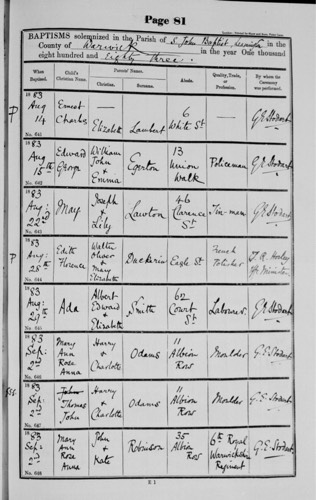 Page 81
BAPTISMS solemnized in the Parish of S. John Baptist in the
County of Warwick in the year One thousand
eight hundred and Eighty Three.
When Baptized. Child's Christian Name. Parents' Names. Christian. Surname. Abode. Quality, Trade, or Profession. By whom the Ceremony was performed.
P 1883 Aug 14 No. 641 Ernest Charles Elizabeth Lambert 6 White St G E Stodart
1883 Aug 15th No. 642 Edward George William John & Emma Egerton 13 Union Walk Policeman G E Stodart
1883 Aug: 22nd No. 643 May Joseph & Lily Lawton 46 Clarence St Tin-man G E Stodart
P 1883 Aug: 28th No. 644 Edith Florence Walter Oliver & Mary Elizabeth Eagle St French Polisher
1883 Aug: 29th No. 645 Ada Albert Edward & Elizabeth Smith 62 Court St Labourer G E Stodart
1883 Sep: 2nd No. 646 Mary Ann Rose Anna Harry & Charlotte Odams 11 Albion Row Moulder G. E. Stodart
1883 Sep: 2nd No. 647 John Thomas John Harry & Charlotte Odams 11 Albion Row Moulder G. E. Stodart
1883 Sep: 2nd No. 648 Mary Ann Rose Anna John & Kate Robinson 35 Albion Row 6th Royal Warwickshire Regiment G. E. Stodart
E 1